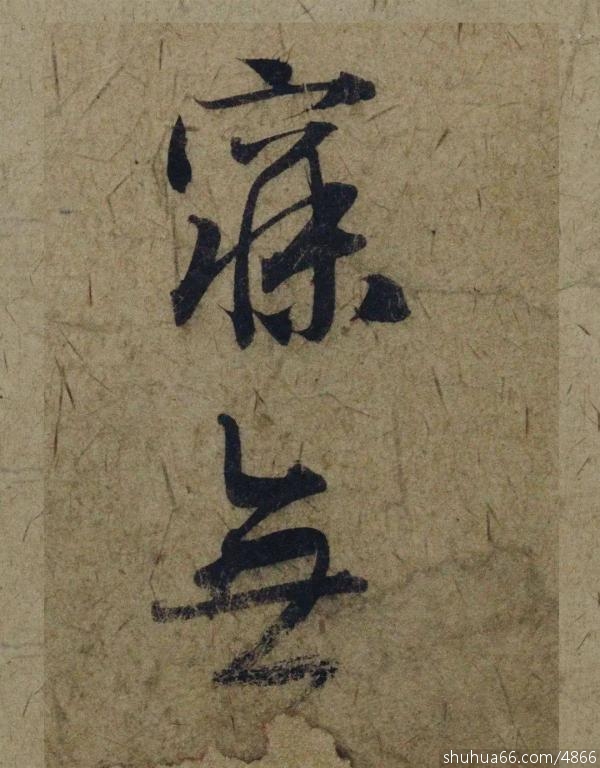 寐無
shuhua66.com/4866